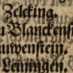 Zelcking.
Blanckenst
auvenstein.
Leiningen.